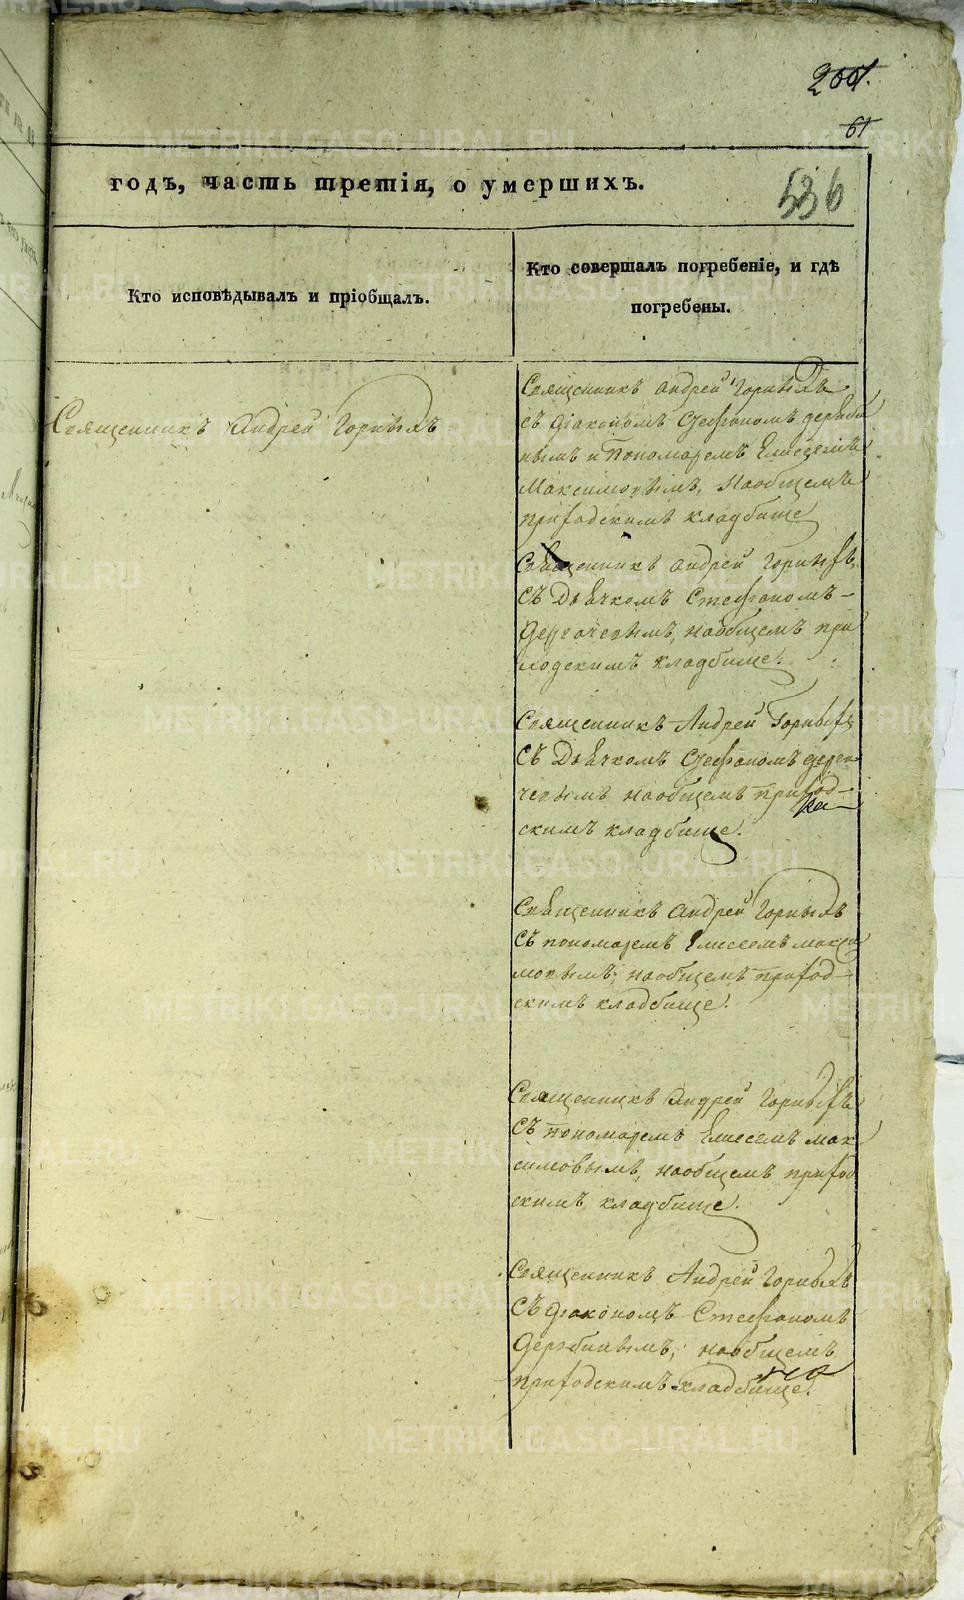 200
61
годъ, часть третія, о умершихъ.
536
Кто исповѣдывалъ и пріобщалъ.
Кто совершалъ погребеніе, и гдѣ
погребены.
Священникъ Андрей Горныхъ
Священникъ Андрей Горныхъ
съ діакономъ Стефаномъ
нымъ и Пономаремъ Елисеемъ
Максимовымъ, наобщемъ
приходскимъ кладбище
Священникъ Андрей Горныхъ,
съ Дьячкомъ Стефаномъ
Дергачевымъ, наобщемъ при
ходскимъ кладбище.
Священникъ Андрей Горныхъ
съ Дьячкомъ Стефаномъ
чевымъ наобщемъ приход-
скимъ кладбище.
Священникъ Андрей Горныхъ
съ пономаремъ Елисеемъ макси
мовымъ, наобщемъ приход-
скимъ кладбище.
Священникъ Андрей Горныхъ
съ пономаремъ Елисеемъ мак
симовымъ, наобщемъ приход
скимъ кладбище.
Священникъ Андрей Горныхъ
съ діакономъ Стефаномъ
Дерябинымъ, наобщемъ
приходскимъ кладбище.
METRIKI.GASO-URAL.RU